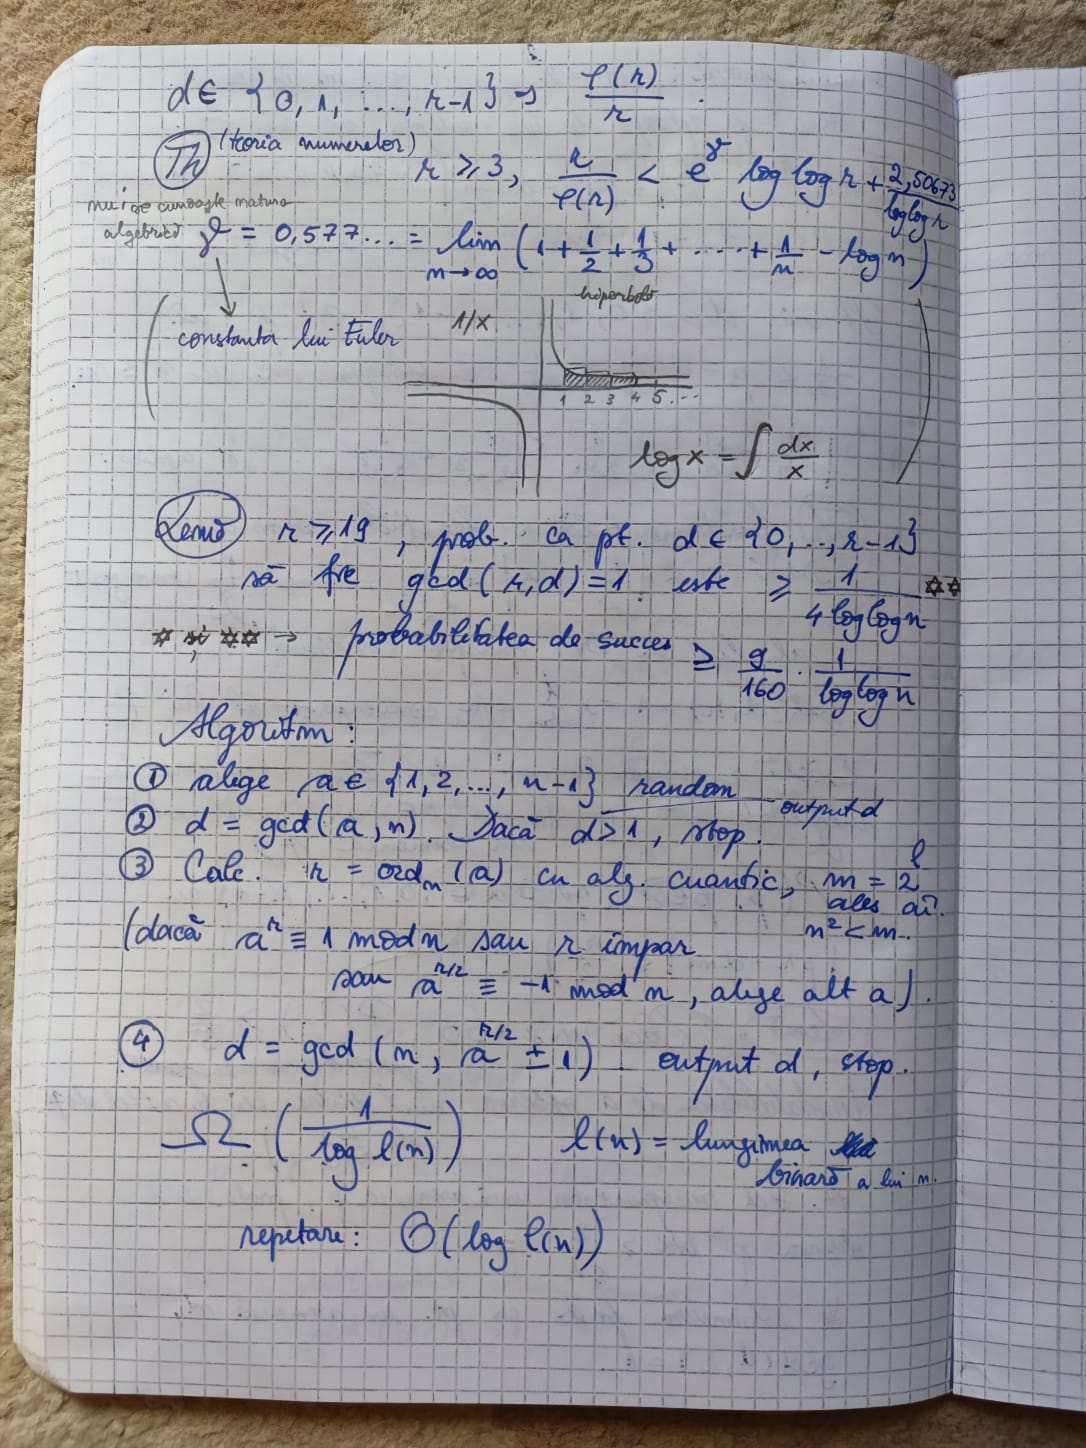 d ∈ {0, 1, ..., r-1} → φ(r)/r .
Th (teoria numerelor) r ≥ 3, r/φ(r) < e^γ log log r + 2,50673/loglog r
nu i se cunoaște natura
algebrică γ = 0,577... = lim n→∞ (1 + 1/2 + 1/3 + ..... + 1/n - log n)
hiperbolă
constanta lui Euler 1/x
1 2 3 4 5 ...
log x = ∫ dx/x
Lemă r ≥ 19, prob. ca pt. d ∈ {0,..., r-1}
să fie gcd(r, d) = 1 este ≥ 1/(4 log log n) ✡✡
✡ și ✡✡ → probabilitatea de succes ≥ 9/160 · 1/(log log n)
Algoritm :
① alege a ∈ {1, 2, ..., n-1} random
output d
② d = gcd(a, n). Dacă d > 1, stop.
③ Calc. r = ord_n(a) cu alg. cuantic, m = 2^l
ales aî.
n² < m.
(dacă a^r ≡ 1 mod n sau r impar
sau a^{r/2} ≡ -1 mod n, alege alt a).
④ d = gcd(n, a^{r/2} ± 1) output d, stop.
Ω (1/(log l(n))) l(n) = lungimea
binară a lui n.
repetare: O(log l(n))